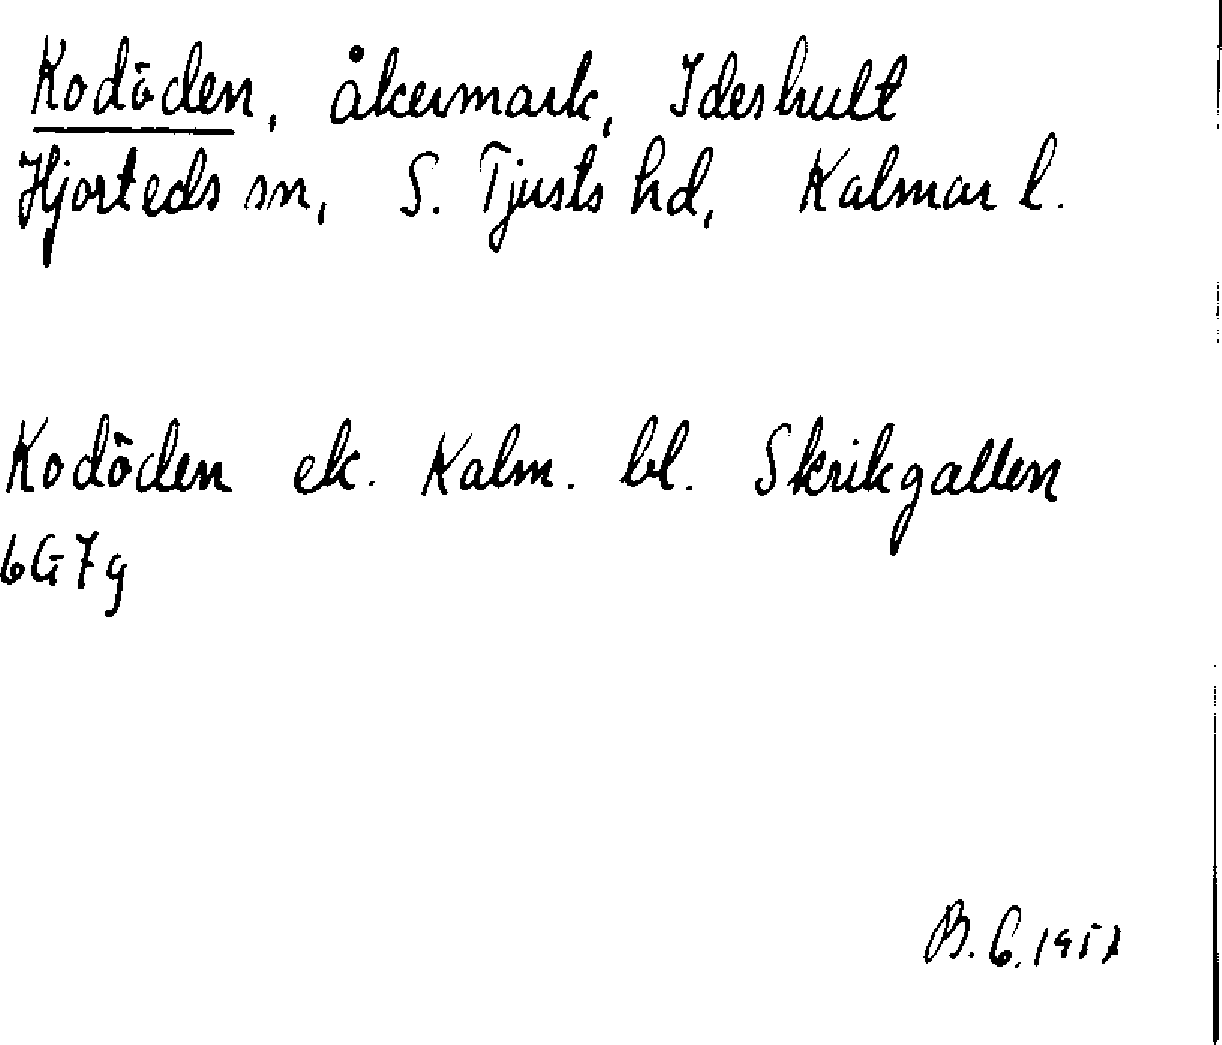 Kodöden, åkermark, Ideshult
Hjorteds sn, S. Tjusts hd, Kalmar l.
Kodöden ek. Kalm. bl. Skrikgallen
6G7g
B. G. 195